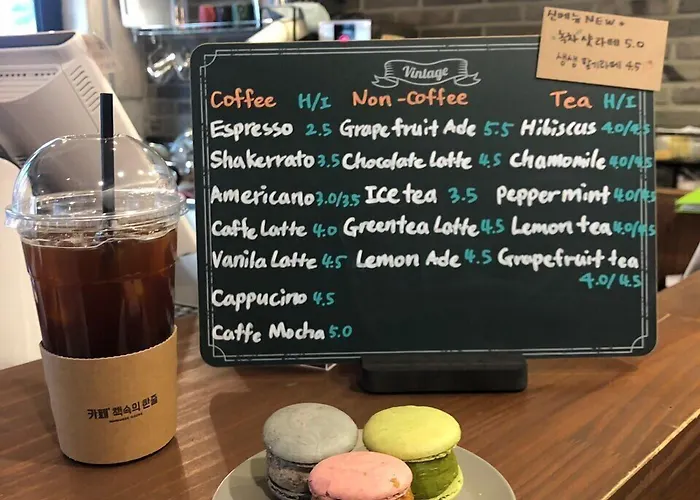 신메뉴 NEW
녹차 샷 라떼 5.0
생생 딸기라떼 4.5
Vintage
Coffee H/I Non-Coffee Tea H/I
Espresso 2.5 Grapefruit Ade 5.5 Hibiscus 4.0/4.5
Shakerrato 3.5 Chocolate latte 4.5 Chamomile 4.0/4.5
Americano 3.0/3.5 Ice tea 3.5 Peppermint 4.0/4.5
Caffe Latte 4.0 Greentea Latte 4.5 Lemon tea 4.0/4.5
Vanila Latte 4.5 Lemon Ade 4.5 Grapefruit tea
4.0/4.5
Cappucino 4.5
Caffe Mocha 5.0
카페 책속의 한줄